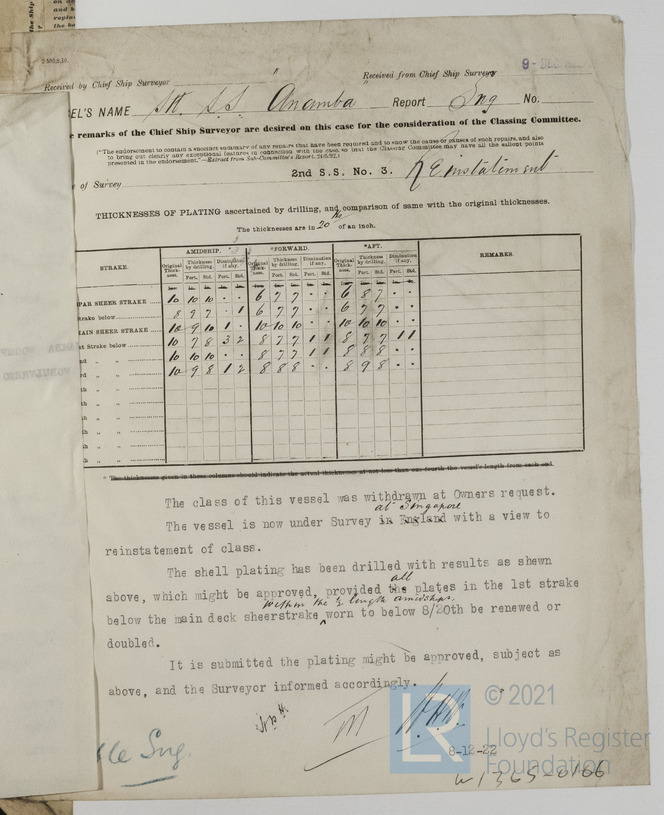 2 500,8,19.
Received by Chief Ship Surveyor
Received from Chief Ship Surveyor
9-DEC
EL'S NAME Stl S.S. Anamba Report Sng No.
e remarks of the Chief Ship Surveyor are desired on this case for the consideration of the Classing Committee.
("The endorsement to contain a succinct summary of any repairs that have been required and to show the cause or causes of such repairs, and also
to bring out clearly any exceptional features in connection with the case, so that the Classing Committee may have all the salient points
presented in the endorsement."—Extract from Sub-Committee's Report,
of Survey 2nd S.S. No. 3. REinstatement
THICKNESSES OF PLATING ascertained by drilling, and comparison of same with the original thicknesses.
The thicknesses are in 20th of an inch.
AMIDSHIP. *FORWARD. *AFT.
STRAKE. Original Thickness. Thickness by drilling. Diminution if any. Original Thickness. Thickness by drilling. Diminution if any. Original Thickness. Thickness by drilling. Diminution if any. REMARKS.
Port. Std. Port. Std. Port. Std. Port. Std. Port. Std. Port. Std.
PAR SHEER STRAKE 10 10 10 . . 6 7 7 . . 6 8 7 . .
Strake below 8 9 7 . 1 6 7 7 . . 6 7 7 . .
AIN SHEER STRAKE 10 9 10 1 . 10 10 10 . . 10 10 10 . .
st Strake below 10 7 8 3 2 8 7 7 1 1 8 7 7 1 1
nd „ „ 10 10 10 . . 8 7 7 1 1 8 8 8 . .
rd „ „ 10 9 8 1 2 8 8 8 . . 8 9 8 . .
th „ „
th „ „
th „ „
th „ „
th „ „
* The thicknesses given in these columns should indicate the actual thicknesses at not less than one-fourth the vessel's length from each end.
The class of this vessel was withdrawn at Owners request.
at Singapore
The vessel is now under Survey in England with a view to
reinstatement of class.
The shell plating has been drilled with results as shewn
all
above, which might be approved, provided the plates in the 1st strake
within the ½ length amidships,
below the main deck sheerstrake worn to below 8/20th be renewed or
doubled.
It is submitted the plating might be approved, subject as
above, and the Surveyor informed accordingly.
8-12-22
Sng.
© 2021
LR
Lloyd's Register
Foundation
W1365-0166